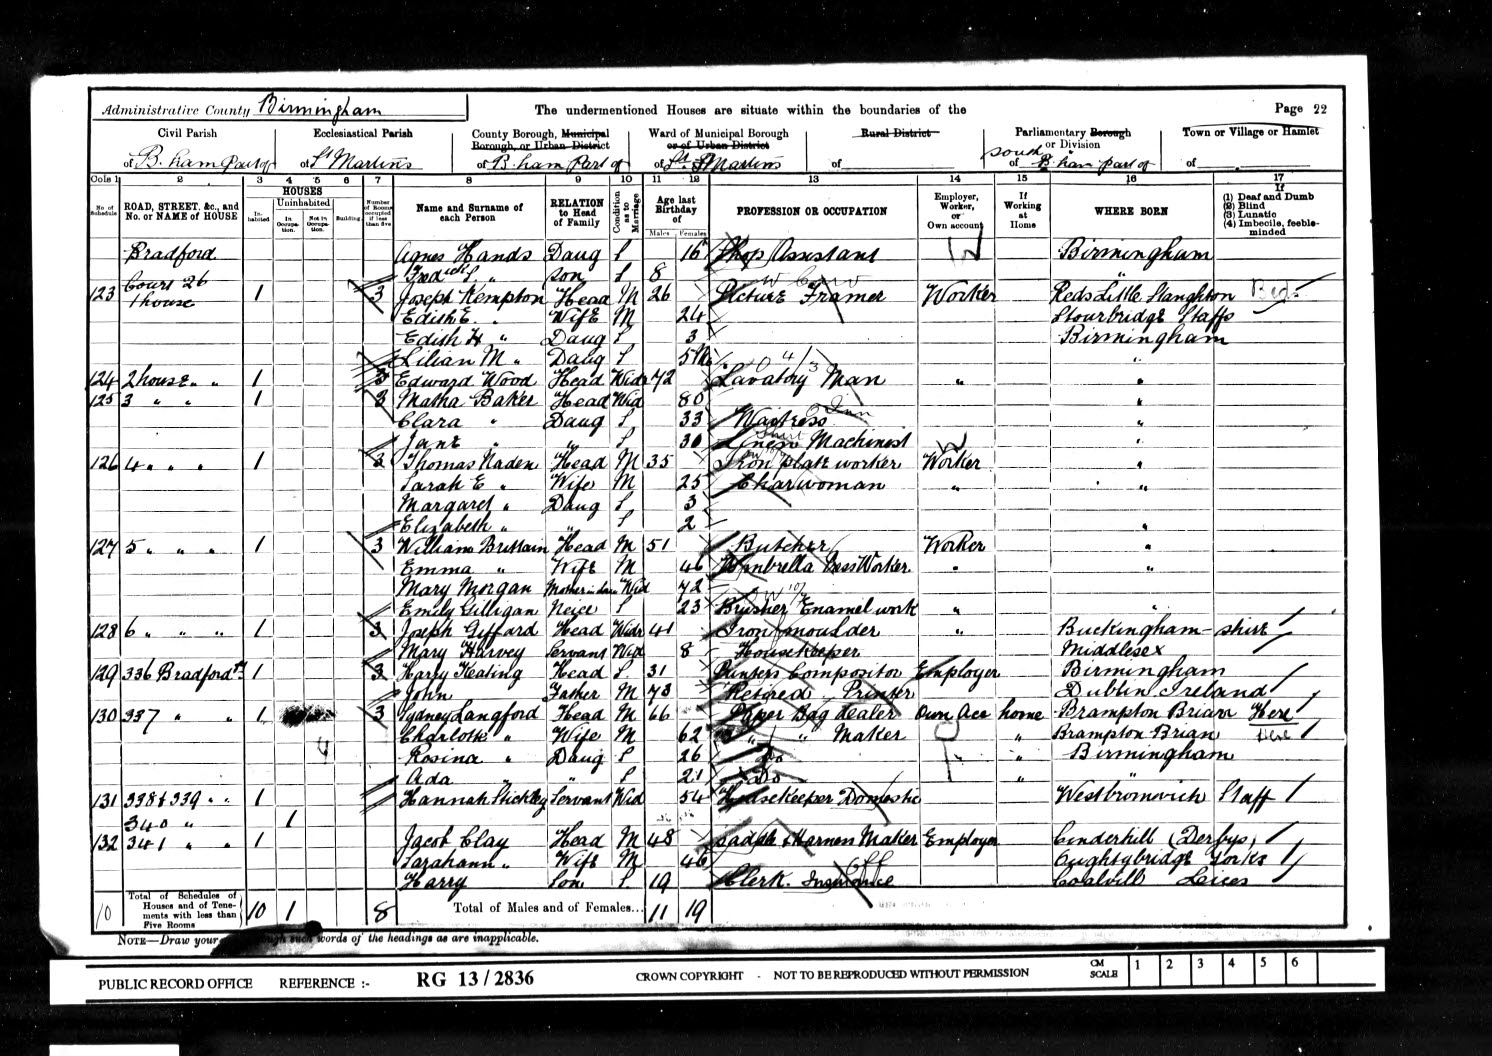 Administrative County Birmingham
The undermentioned Houses are situate within the boundaries of the
Page 22
Civil Parish Ecclesiastical Parish County Borough, Municipal Borough, or Urban District Ward of Municipal Borough or of Urban District Rural District Parliamentary Borough or Division Town or Village or Hamlet
of B.ham Part of of St Martins of B.ham Part of of St Martins of South of B.ham part of of
Cols 1 2 3 4 5 6 7 8 9 10 11 12 13 14 15 16 17
No. of Schedule ROAD, STREET, &c., and No. or NAME of HOUSE HOUSES Inhabited Uninhabited In Occupation. Not in Occupation. Building. Number of Rooms occupied if less than five Name and Surname of each Person RELATION to Head of Family Condition as to Marriage Age last Birthday of Males Females PROFESSION OR OCCUPATION Employer, Worker, or Own account If Working at Home WHERE BORN If (1) Deaf and Dumb (2) Blind (3) Lunatic (4) Imbecile, feeble-minded
Bradford Agnes Hands Daug S 16 Shop Assistant W Birmingham
Fredick S. " Son S 8 "
123 Court 26 1 house 1 3 Joseph Kempton Head M 26 Picture Framer Worker Beds Little Staughton Beds
Edith E. " Wife M 24 Stourbridge Staffs
Edith H " Daug S 3 Birmingham
Lilian M " Daug S 5M "
124 2 house " " 1 3 Edward Wood Head Widr 72 Lavatory Man " "
125 3 " " 1 3 Matha Baker Head Wid 80 "
Clara " Daug S 33 Waitress Inn "
Jane " " S 30 Linen Machinist "
126 4 " " " 1 3 Thomas Naden Head M 35 Iron plate worker Worker "
Sarah E " Wife M 25 Charwoman " "
Margaret " Daug S 3
Elizabeth " " S 2 "
127 5 " " " 1 3 William Brittain Head M 51 Butcher Worker "
Emma " Wife M 46 Umbrella Worker. " "
Mary Morgan Mother in Law Wid 72
Emily Gilligan Neice S 23 Brusher Enamel work " "
128 6 " " " 1 3 Joseph Giffard Head Widr 41 Iron moulder " Buckingham-shire
Mary Harvey Servant Wid 8 Housekeeper Middlesex
129 336 Bradford St 1 3 Harry Keating Head S. 31 Printers Compositor Employer Birmingham
John Father M 73 Retired Printer Dublin Ireland
130 337 " " 1 3 Sydney Langford Head M 66 Paper Bag dealer Own Acc home Brampton Brian Here
Charlotte " Wife M 62 " " Maker " Brampton Brian Here
Rosina " Daug S 26 Do " " Birmingham
Ada " " S 21 Do " "
131 338 & 339 " " 1 Hannah Stickley Servant Wid 54 Housekeeper Domestic Westbromwich Staff
340 " 1
132 341 " " 1 Jacob Clay Head M 48 Saddle & Harness Maker Employer Cinderhill (Derbys)
Sarahann " Wife M 46 Oughtybridge Yorks
Harry Son S. 19 Clerk. Insurance Off Coalvill Leices
10 Total of Schedules of Houses and of Tenements with less than Five Rooms 10 1 8 Total of Males and of Females... 11 19
NOTE—Draw your such words of the headings as are inapplicable.
PUBLIC RECORD OFFICE REFERENCE :- RG 13/2836 CROWN COPYRIGHT - NOT TO BE REPRODUCED WITHOUT PERMISSION CM SCALE 1 2 3 4 5 6